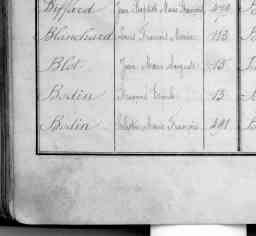 Diffard Jean Baptiste Marie François
Blanchard Louis François Marie 113
Blot Jean Marie Auguste 15
Bodin François 13
Bodin Marie François 291